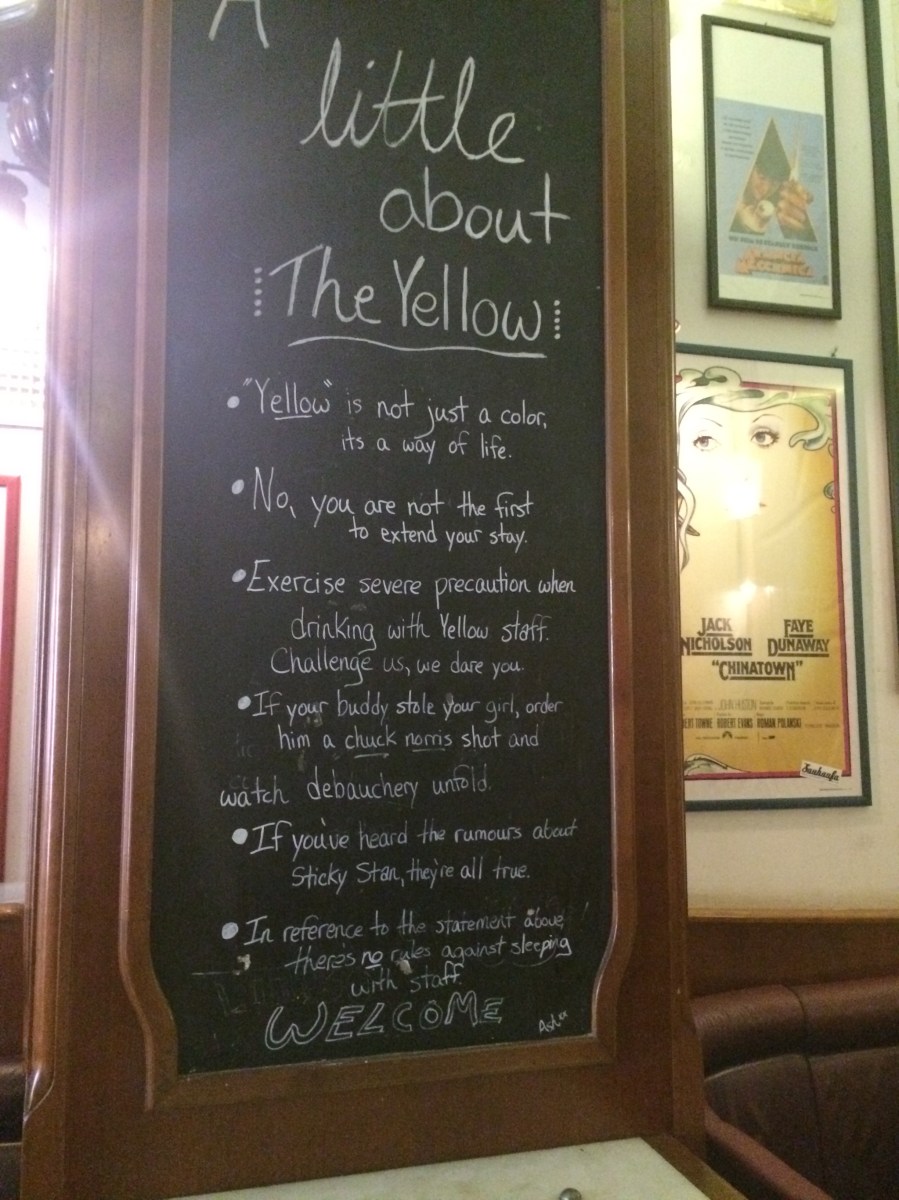 A
little
about
The Yellow
• "Yellow" is not just a color,
its a way of life.
• No, you are not the first
to extend your stay.
• Exercise severe precaution when
drinking with Yellow staff.
Challenge us, we dare you.
• If your buddy stole your girl, order
him a chuck norris shot and
watch debauchery unfold.
• If you've heard the rumours about
Sticky Stan, they're all true.
• In reference to the statement above,
there's no rules against sleeping
with staff.
WELCOME
JACK
NICHOLSON
FAYE
DUNAWAY
"CHINATOWN"
JOHN HUSTON
ROBERT EVANS
ROMAN POLANSKI